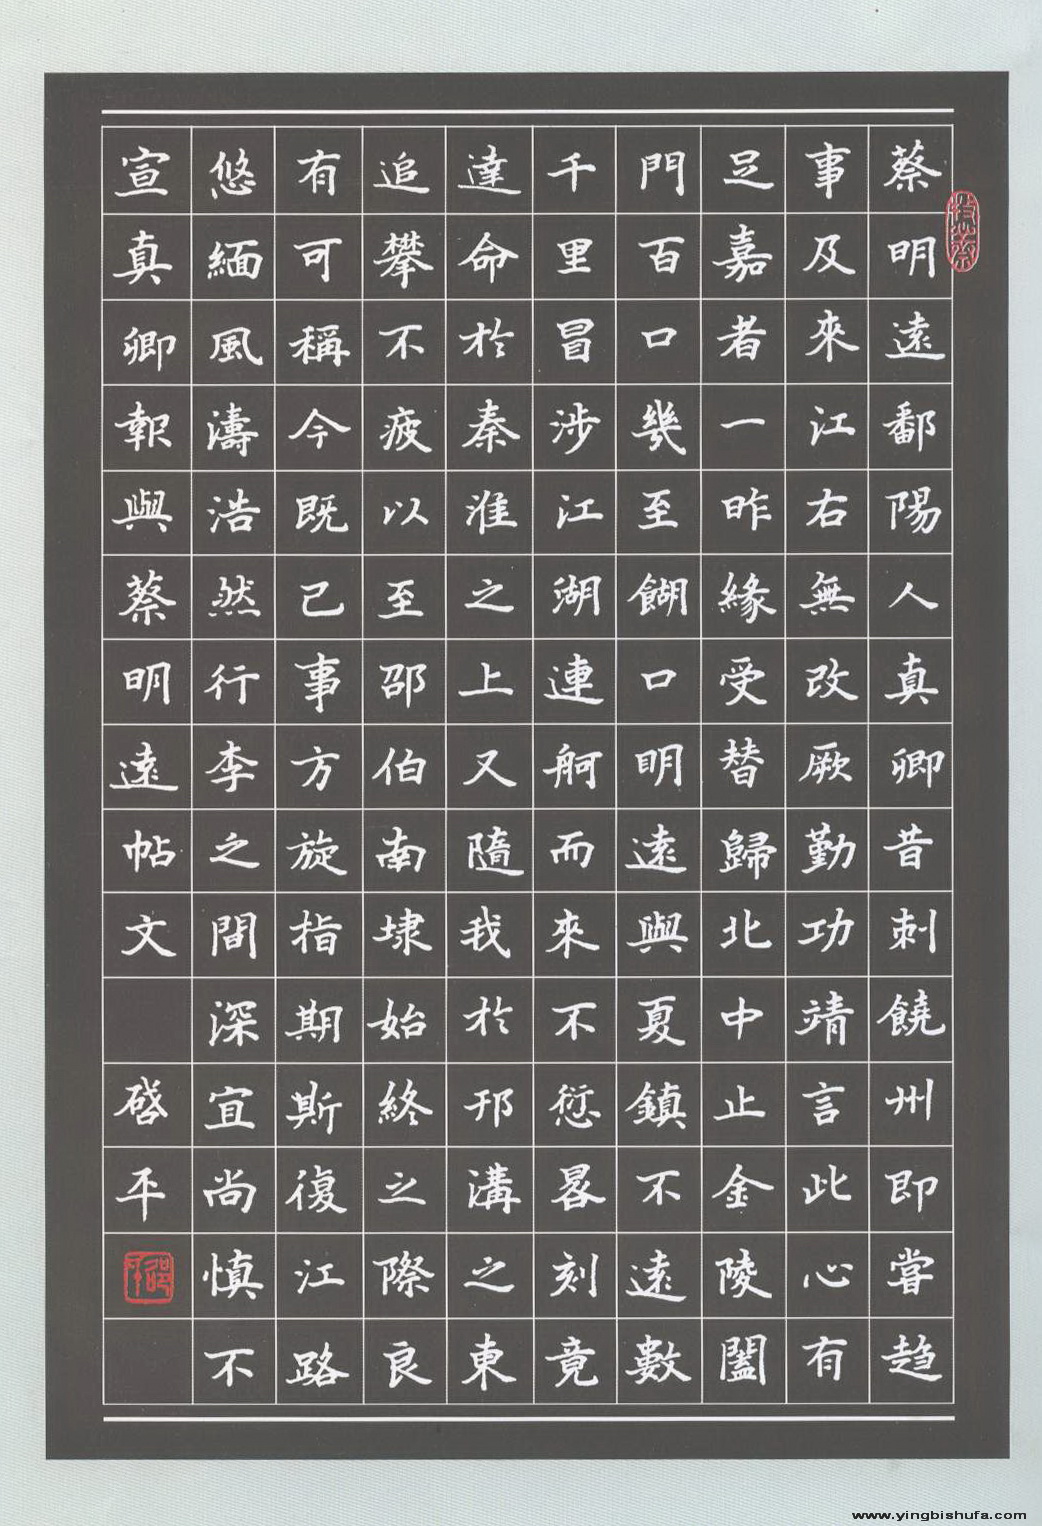 蔡明遠鄱陽人真卿昔刺饒州即嘗趋
事及來江右無改厥勤功靖言此心有
足嘉者一昨緣受替歸北中止金陵闔
門百口幾至餬口明遠與夏鎮不遠數
千里冒涉江湖連舸而來不愆晷刻竟
達命於秦淮之上又隨我於邗溝之東
追攀不疲以至邵伯南埭始終之際良
有可稱今既已事方旋指期斯復江路
悠緬風濤浩然行李之間深宜尚慎不
宣真卿報與蔡明遠帖文 啓平
www.yingbishufa.com